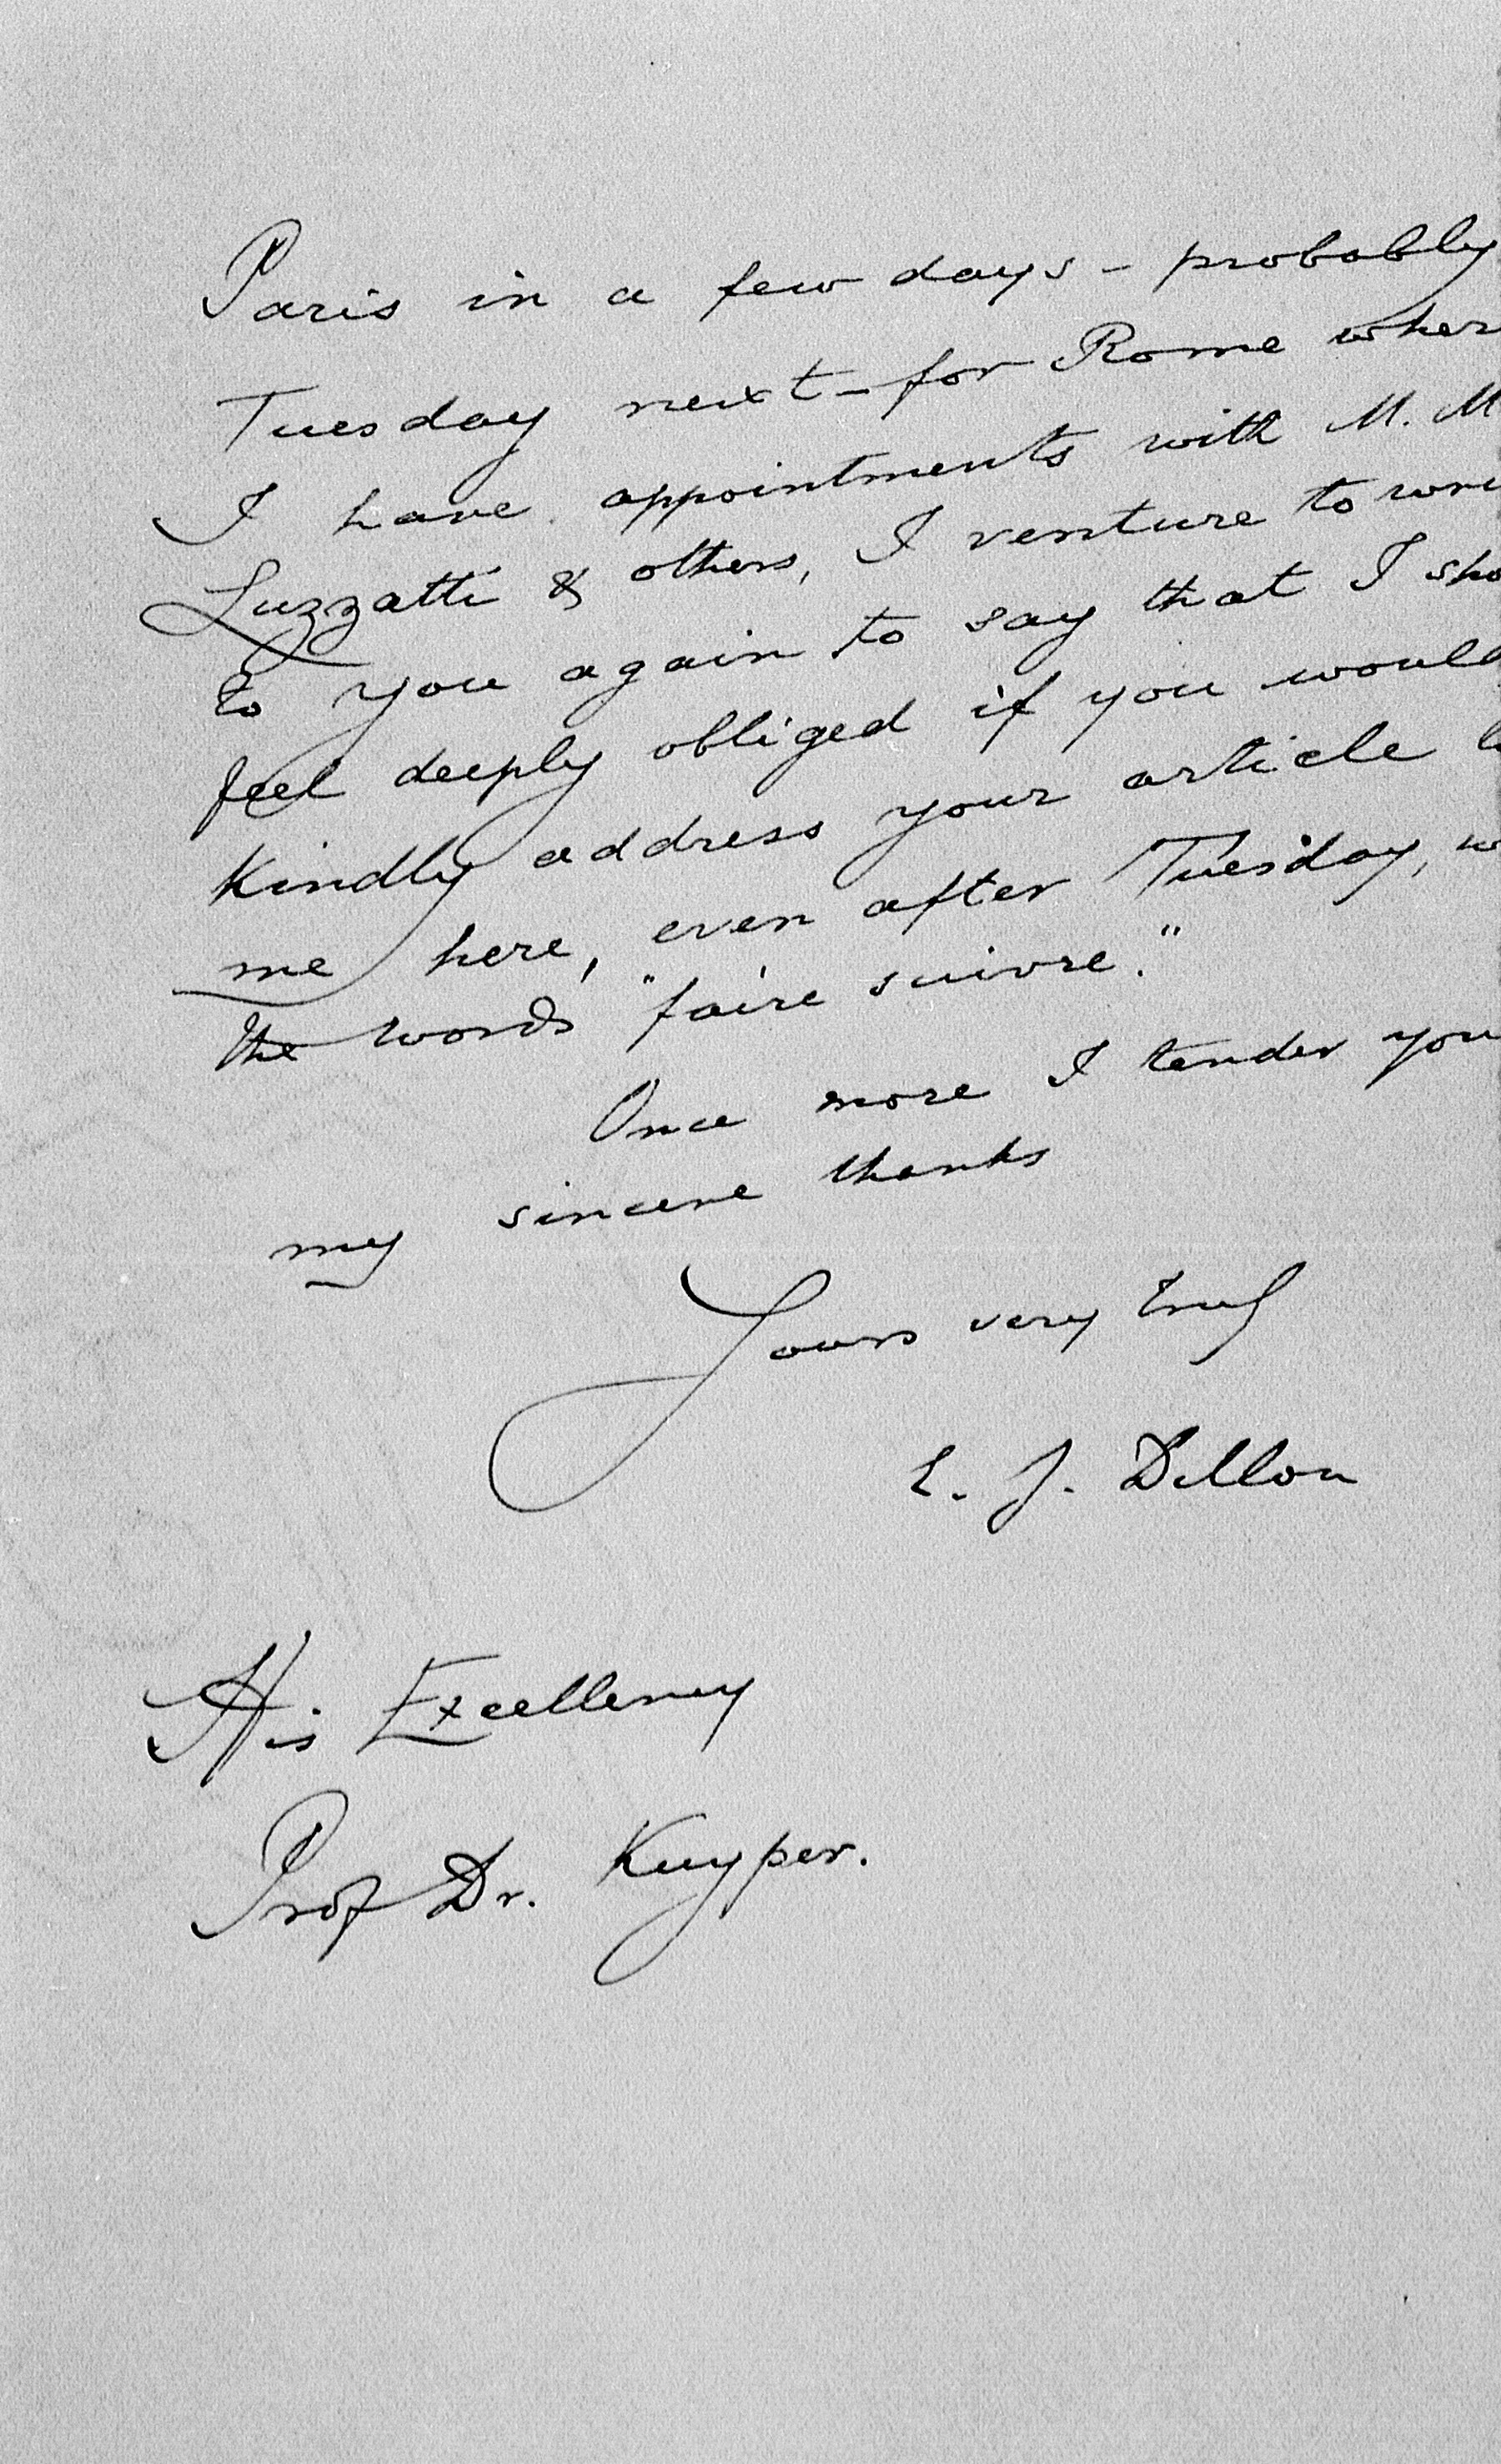 Paris in a few days - probably
Tuesday next - for Rome wher
I have appointments with M. M
Luzzatti & others, I venture to wri
to you again to say that I sho
feel deeply obliged if you would
kindly address your article
me here, even after Tuesday, w
the words "faire suivre."
Once more I tender you
my sincere thanks
Yours very truly
E. J. Dillon
His Excellency
Prof Dr. Kuyper.